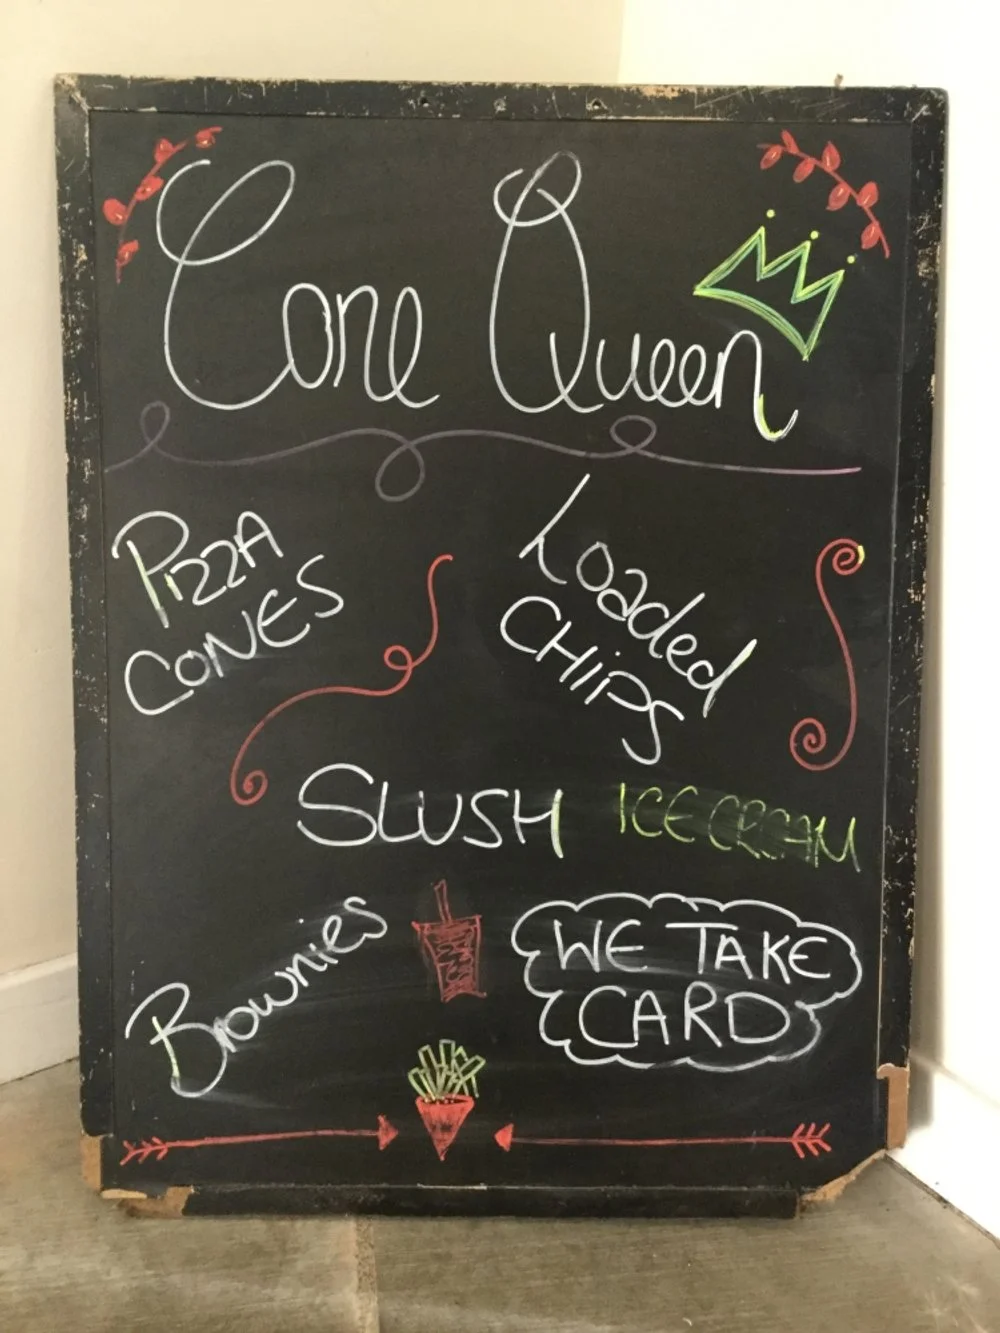 Cone Queen
PIZZA
CONES
Loaded
CHIPS
SLUSH ICE CREAM
Brownies
WE TAKE
CARD